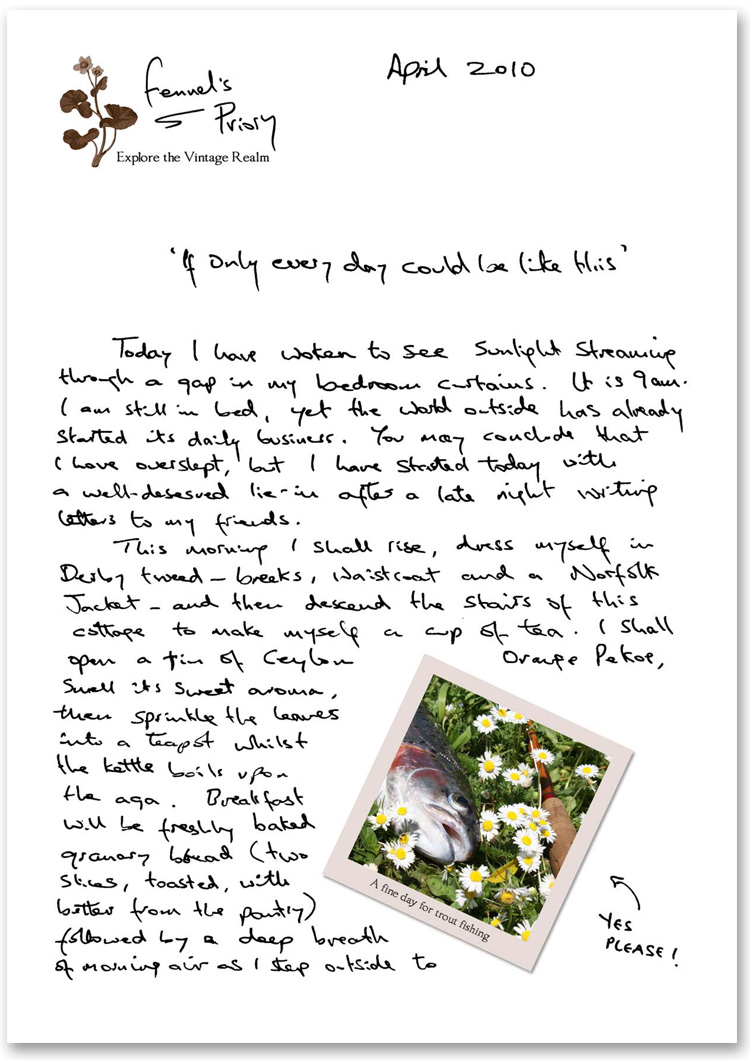 Fennel's
Priory
Explore the Vintage Realm
April 2010
'If only every day could be like this'
Today I have woken to see sunlight streaming
through a gap in my bedroom curtains. It is 9am.
I am still in bed, yet the world outside has already
started its daily business. You may conclude that
I have overslept, but I have started today with
a well-deserved lie-in after a late night writing
letters to my friends.
This morning I shall rise, dress myself in
Derby tweed – breeks, waistcoat and a Norfolk
Jacket – and then descend the stairs of this
cottage to make myself a cup of tea. I shall
open a tin of Ceylon Orange Pekoe,
smell its sweet aroma,
then sprinkle the leaves
into a teapot whilst
the kettle boils upon
the aga. Breakfast
will be freshly baked
granary bread (two
slices, toasted, with
butter from the pantry)
followed by a deep breath
of morning air as I step outside to
A fine day for trout fishing
YES
PLEASE!